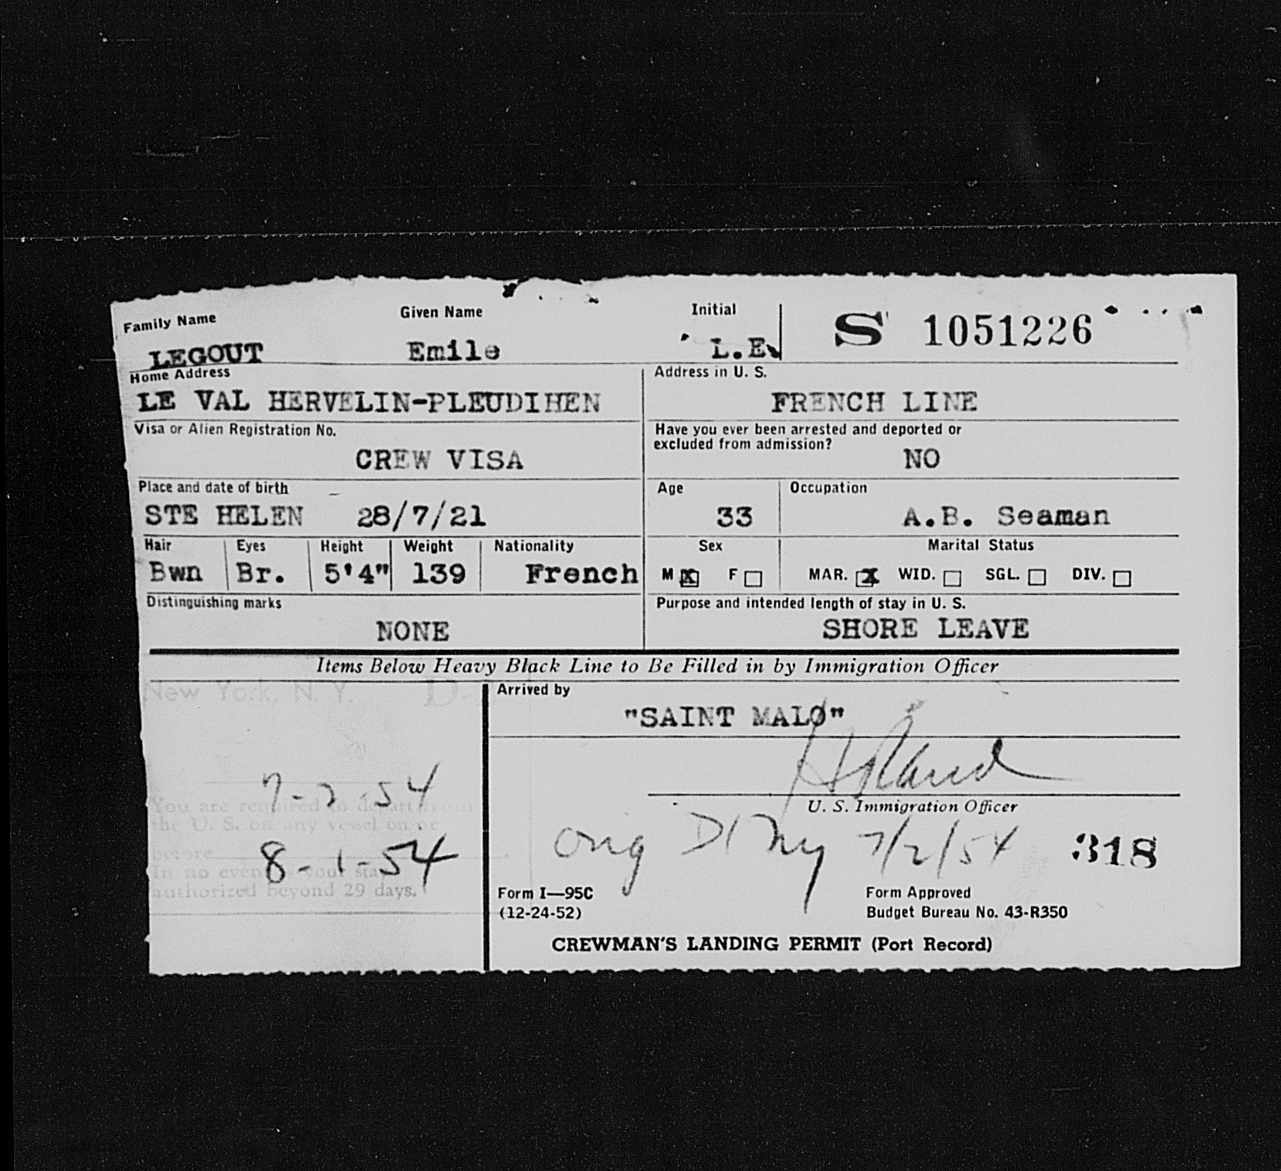 Family Name Given Name Initial
LEGOUT Emile L.E. S 1051226
Home Address Address in U. S.
LE VAL HERVELIN-PLEUDIHEN FRENCH LINE
Visa or Alien Registration No. Have you ever been arrested and deported or
excluded from admission?
CREW VISA NO
Place and date of birth Age Occupation
STE HELEN 28/7/21 33 A.B. Seaman
Hair Eyes Height Weight Nationality Sex Marital Status
Bwn Br. 5'4" 139 French M X F MAR. X WID. SGL. DIV.
Distinguishing marks Purpose and intended length of stay in U. S.
NONE SHORE LEAVE
Items Below Heavy Black Line to Be Filled in by Immigration Officer
New York, N. Y.
Arrived by
"SAINT MALO"
7-2-54
You are required to depart from
the U. S. on any vessel on or
before
8-1-54
In no event your stay
authorized beyond 29 days.
U. S. Immigration Officer
Orig D1 Ny 7/2/54 318
Form I—95C Form Approved
(12-24-52) Budget Bureau No. 43-R350
CREWMAN'S LANDING PERMIT (Port Record)